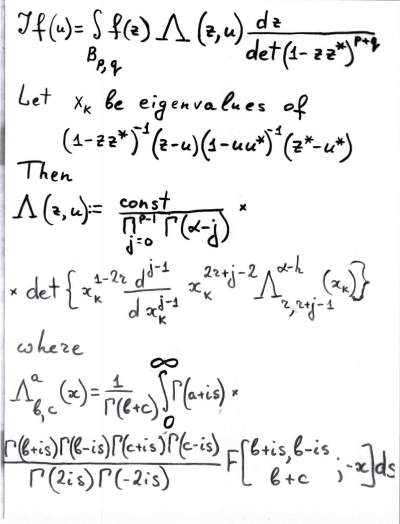 Jf(u)=∫f(z) Λ(z,u) dz/det(1-zz*)^{p+q}
B_{p,q}
Let x_k be eigenvalues of
(1-zz*)^{-1}(z-u)(1-uu*)^{-1}(z*-u*)
Then
Λ(z,u):= const/∏_{j=0}^{p-1} Γ(α-j) ×
× det{x_k^{1-2r} d^{j-1}/dx_k^{j-1} x_k^{2r+j-2} Λ^{α-h}_{r,r+j-1}(x_k)}
where
Λ^a_{b,c}(x)= 1/Γ(b+c) ∫_0^∞ Γ(a+is) ×
Γ(b+is)Γ(b-is)Γ(c+is)Γ(c-is)/Γ(2is)Γ(-2is) F[b+is,b-is b+c ;-x]ds